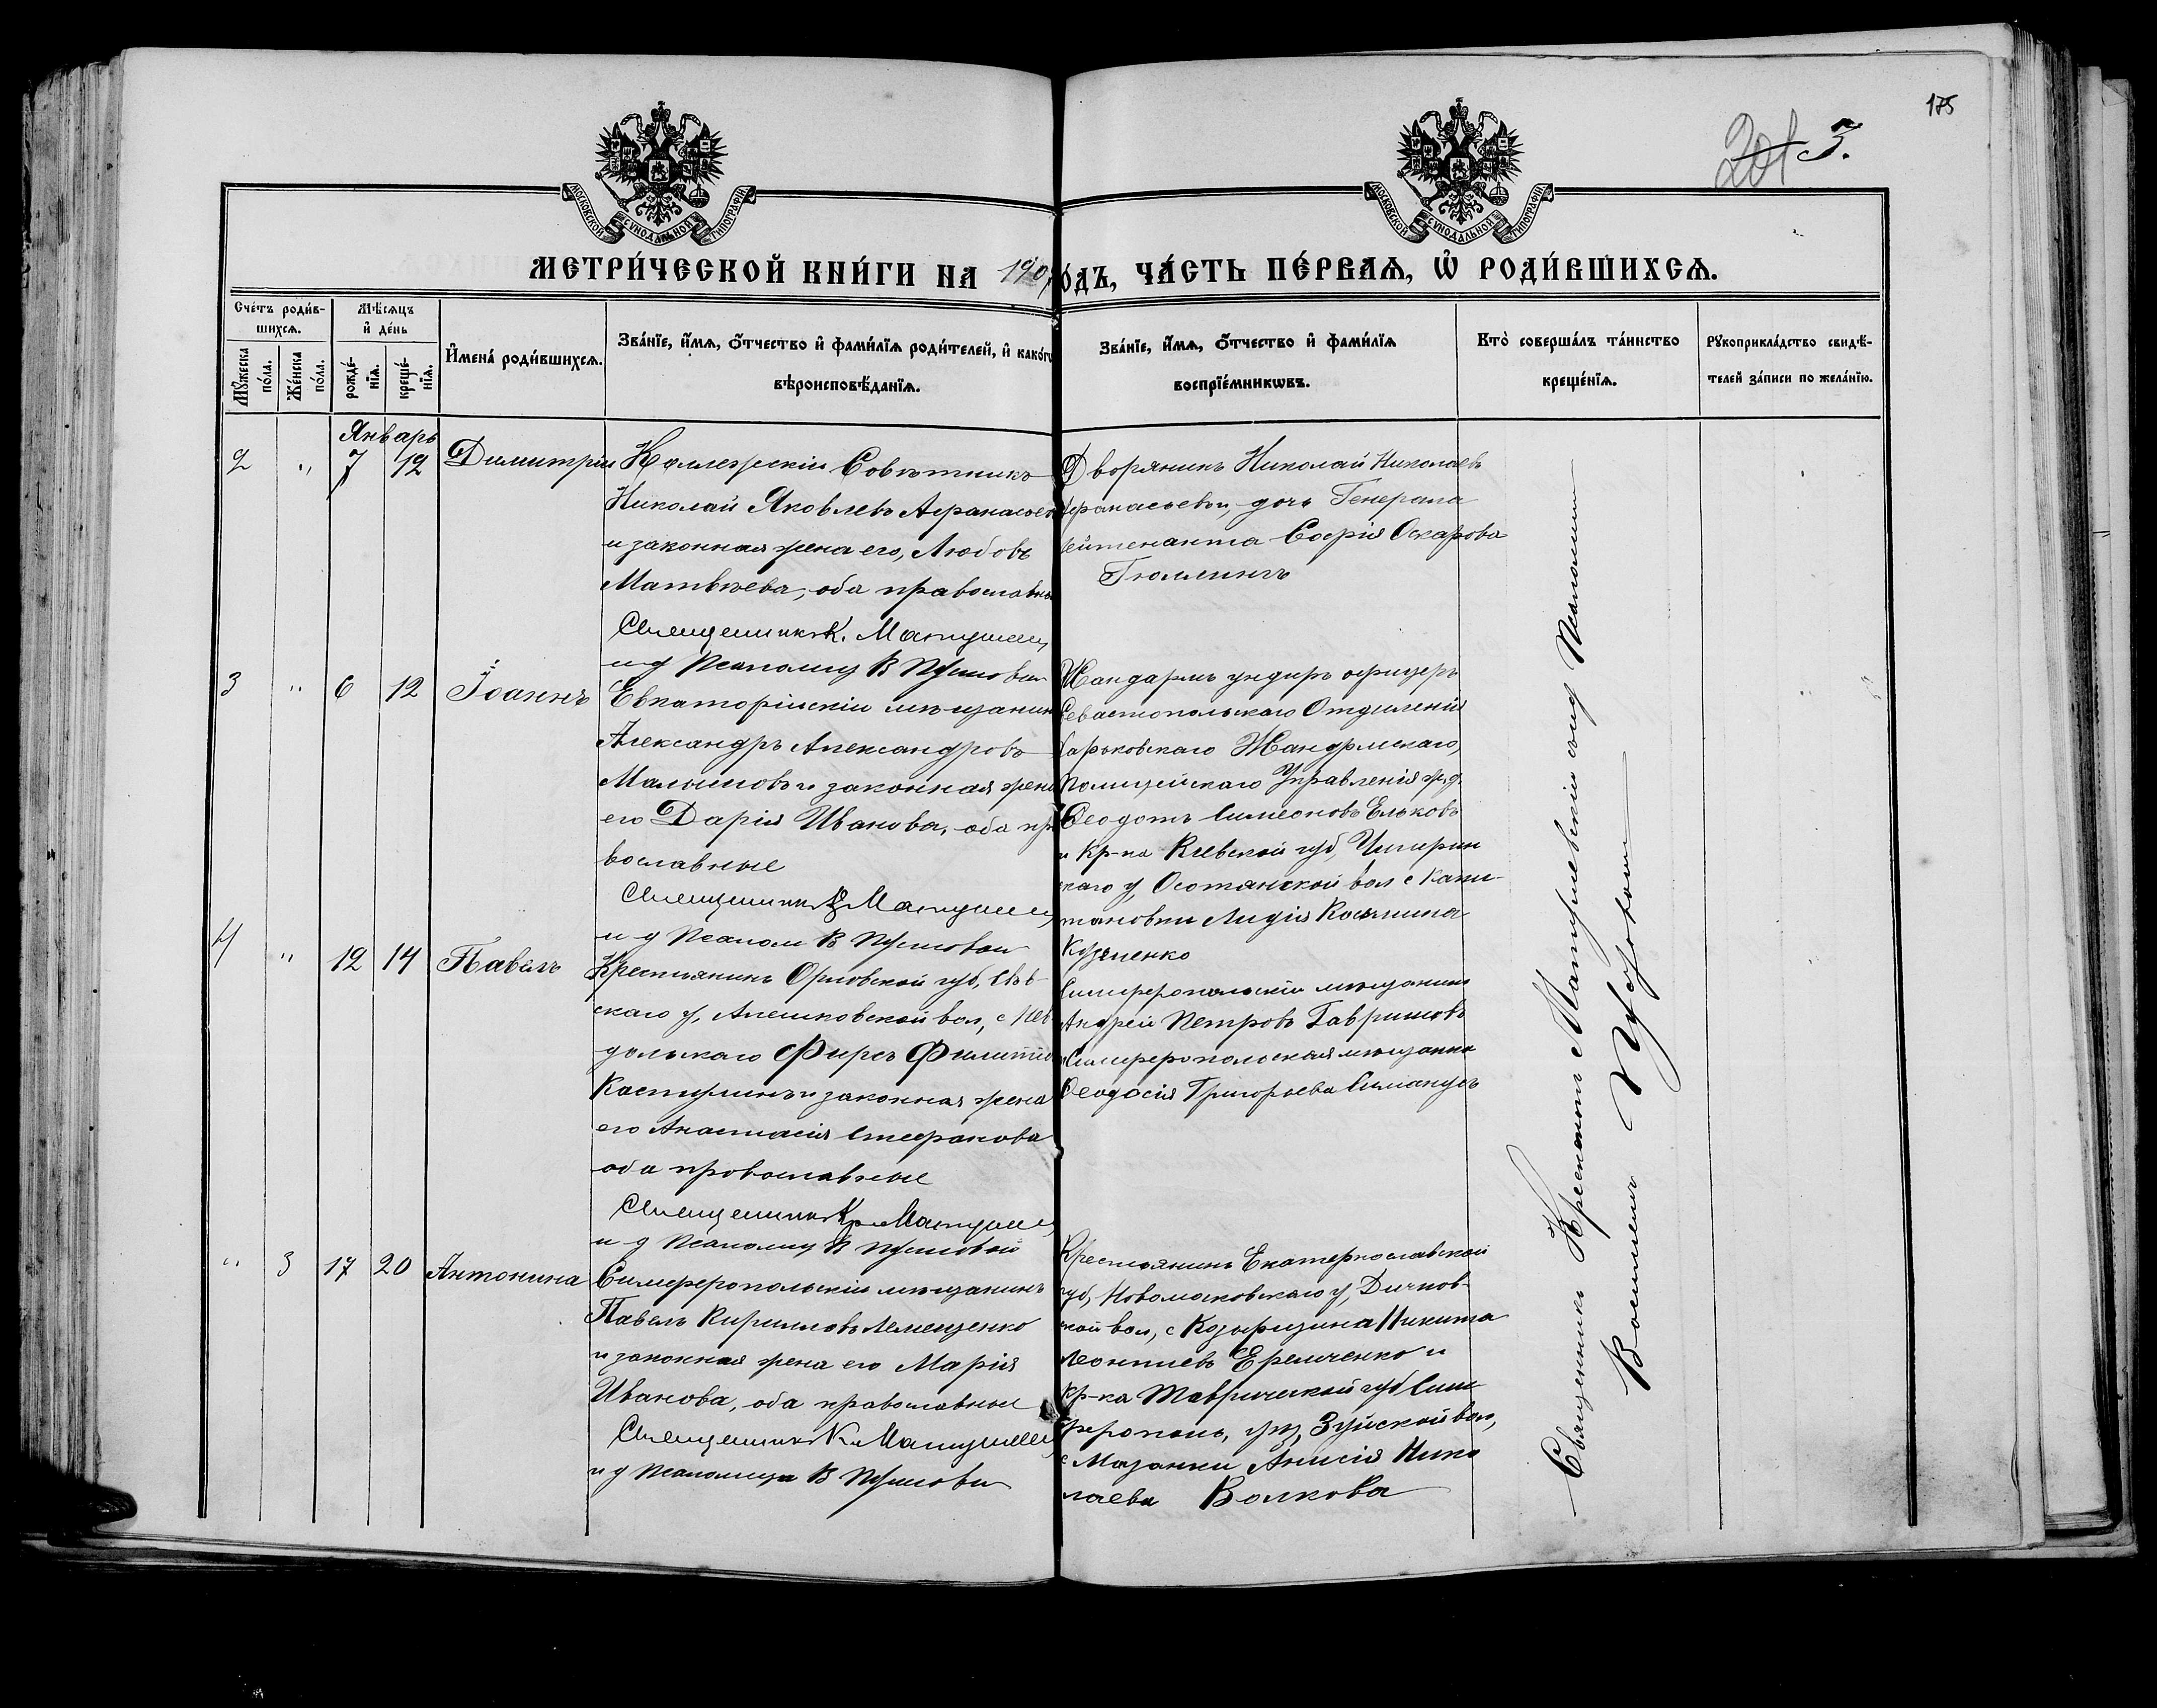 175
201 3.
МОСКОВСКОЙ СѴНОДАЛЬНОЙ ТИПОГРАФІИ
МОСКОВСКОЙ СѴНОДАЛЬНОЙ ТИПОГРАФІИ
МЕТРИ́ЧЕСКОЙ КНИ́ГИ НА 190
ѻ́ДЪ, ЧА́СТЬ ПЕ́РВАѦ, Ѡ҆ РОДИ́ВШИХСѦ.
Сче́тъ роди́в-
шихсѧ.
Мꙋжеска по́ла.
Же́нска по́ла.
Мѣ́сѧцъ
и҆ де́нь
рожде́-
нїѧ.
креще́-
нїѧ.
И҆мена̀ роди́вшихсѧ.
Зва́нїе, и҆́мѧ, ѻ҆́тчество и҆ фами́лїѧ роди́телей, и҆ како́гѡ
вѣроисповѣ́данїѧ.
Зва́нїе, и҆́мѧ, ѻ҆́тчество и҆ фами́лїѧ
воспрїе́мникѡвъ.
Кто̀ соверша́лъ та́инство
креще́нїѧ.
Рꙋкоприкла́дство свидѣ́-
телей за́писи по жела́нїю.
Январь
2 " 7 12 Димитрій
Коллежскій Совѣтникъ
Николай Яковлевъ Афанасьев
и законная жена его, Любовь
Матвѣева, оба православны
Священникъ К.
и д Псаломщ В
Дворянинъ Николай Николаевъ
Афанасьевъ и, дочь Генерала
лейтенанта Софія Оскарова
Гюллингъ
3 " 6 12 Іоаннъ
Евпаторійскій мѣщанин
Александръ Александровъ
и законная жена
его Дарія Иванова, оба пр
вославные
Священникъ
и д Псалом В
Жандармъ ундиръ офицеръ
Севастопольскаго Отдѣленія
Харьковскаго Жандрмскаго,
Полицейскаго Управленія ж, д.
Ѳеодотъ Симеоновъ Ельковъ
и Кр-ка Кіевской губ, Чигирин
скаго у, Осотянской вол с Капи-
тановки Лидія
Кузменко
4 " 12 14 Павелъ
Крестьянинъ Орловской губ, Сѣв-
скаго у, Алешковской вол, с Нев-
дольскаго Фирсъ Филиппо
и законная жена
его Анастасія Стефанова
оба провославные
Священникъ
и д Псаломщ В
Симферопольскій мѣщанинъ
Андрей Петровъ Гавриловъ
и Симферопольская мѣщанка
Ѳеодосія Григорьева
" 3 17 20 Антонина
Симферопольскій мѣщанинъ
Павелъ Кирилловъ Лемещенко
и законная жена его Марія
Иванова, оба православные
Священникъ К
и д Псаломщика В
Крестьянинъ Екатернославской
губ, Новомосковскаго у,
ской вол, с Козырщина Никита
Леонтіевъ Еремченко и
Кр-ка Таврической губ Сим
ферополь, уѣз, Зуйской вол,
с Мазанки Анисія Нико
лаева Волкова
Священникъ